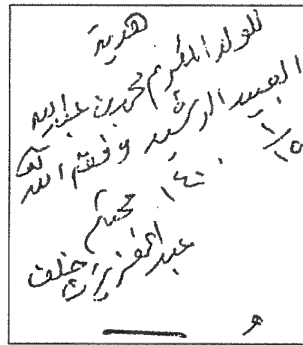 هدية
للولد المكرم محمد بن عبدالله
العبيد الرشيد وفقه الله
١٤٠٠/١/١٥
محبكم
عبدالعزيز بن خلف